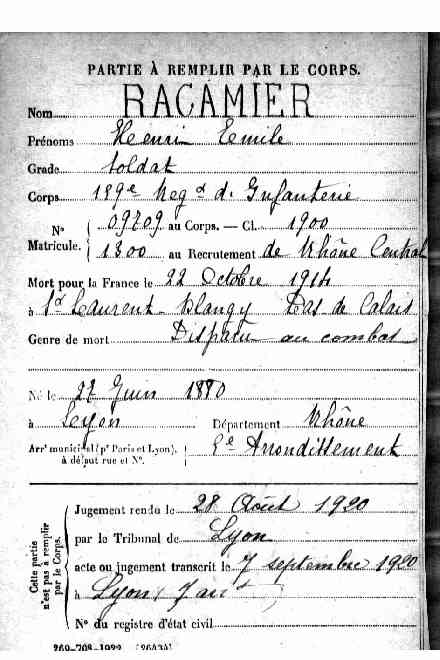 PARTIE À REMPLIR PAR LE CORPS.
Nom RACAMIER
Prénoms Henri Emile
Grade Soldat
Corps Regt d'Infanterie
N° Matricule. au Corps. — Cl. 1900
1300 au Recrutement de Rhône Central
Mort pour la France le 22 Octobre 1914
à St Laurent Blangy Pas de Calais
Genre de mort Disparu au combat
Né le Juin 1880
à Lyon Département Rhône
Arrt municipal (pr Paris et Lyon), à défaut rue et N°. Arrondissement
Cette partie n'est pas à remplir par le Corps.
Jugement rendu le 28 Août 1920
par le Tribunal de Lyon
acte ou jugement transcrit le 7 septembre 1920
à Lyon
N° du registre d'état civil